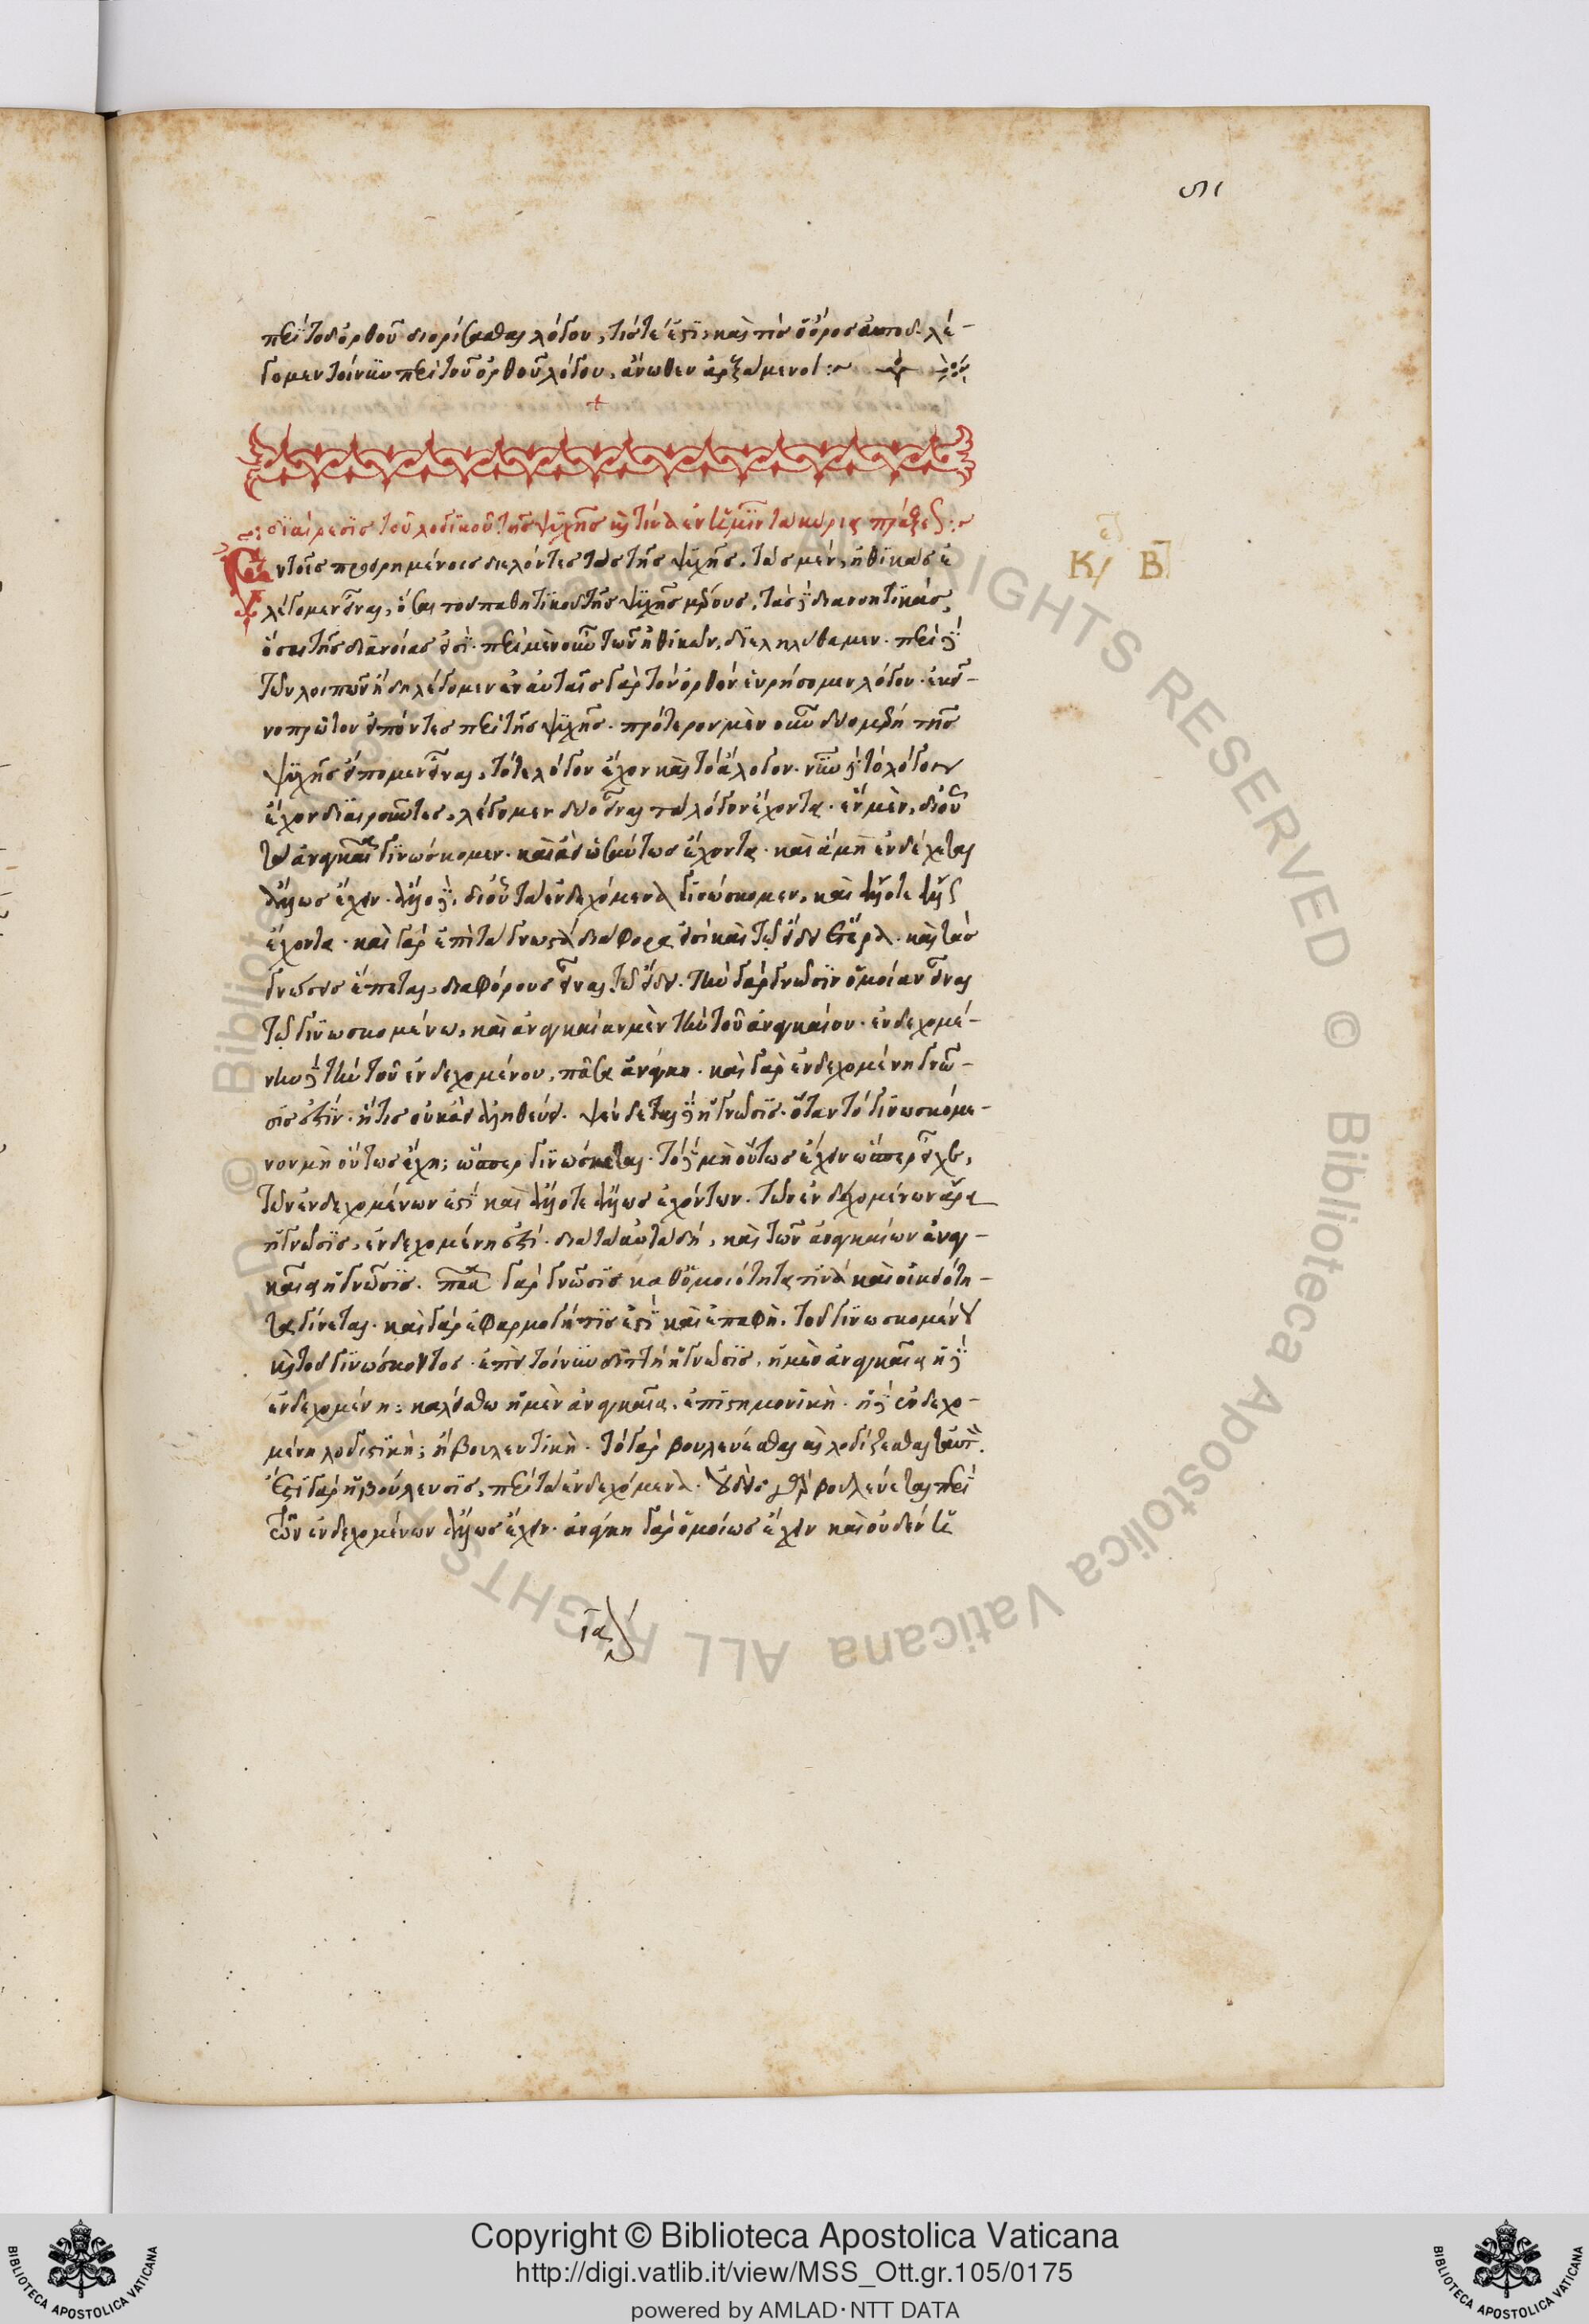 περὶ τοῦ ὀρθοῦ διορίσασθαι λόγου, τίς τέ ἐστι, καὶ τίς ὁ ὅρος αὐτοῦ. λέ-
γομεν τοίνυν περὶ τοῦ ὀρθοῦ λόγου, ἄνωθεν ἀρξάμενοι :~
διαίρεσις τοῦ λογικοῦ τῆς ψυχῆς καὶ τίνα ἐν ἡμῖν τὰ κύρια πράξεως :~
Ἐν τοῖς προειρημένοις διελόντες τὰς τῆς ψυχῆς, τὰς μὲν, ἠθικὰς ἐ
λέγομεν εἶναι, ὅσαι τοῦ παθητικοῦ τῆς ψυχῆς μέρους, τὰς δὲ διανοητικάς,
ὅσαι τῆς διανοίας εἰσί. περὶ μὲν οὖν τῶν ἠθικῶν, διεληλύθαμεν. περὶ δὲ
τῶν λοιπῶν ἤδη λέγομεν ἐν αὐταῖς γὰρ τὸν ὀρθὸν εὑρήσομεν λόγον. ἐκεῖ-
νο πρῶτον εἰπόντες περὶ τῆς ψυχῆς. πρότερον μὲν οὖν δύο μέρη τῆς
ψυχῆς εἴπομεν εἶναι, τό τε λόγον ἔχον καὶ τὸ ἄλογον. νῦν δὲ τὸ λόγον
ἔχον διαιροῦντες, λέγομεν δύο εἶναι τὰ λόγον ἔχοντα. ἓν μὲν, δι' οὗ
τὰ ἀναγκαῖα γινώσκομεν. καὶ ἀεὶ ὡσαύτως ἔχοντα. καὶ ἃ μὴ ἐνδέχεται
ἄλλως ἔχειν. ἄλλο δὲ, δι' οὗ τὰ ἐνδεχόμενα γινώσκομεν, καὶ ἄλλοτε ἄλλως
ἔχοντα. καὶ γὰρ ἐπὶ τὰ γνωστὰ διάφορα εἰσὶ καὶ τῷ εἴδει ἕτερα. καὶ τὰς
γνώσεις ἕπεται, διαφόρους εἶναι τῷ εἴδει. τὴν γὰρ γνῶσιν ὁμοίαν εἶναι
τῷ γινωσκομένῳ, καὶ ἀναγκαίαν μὲν τὴν τοῦ ἀναγκαίου. ἐνδεχομέ-
νην δὲ τὴν τοῦ ἐνδεχομένου, πᾶσα ἀνάγκη. καὶ γὰρ ἐνδεχομένη γνῶ-
σίς ἐστιν. ἥτις οὐκ ἀεὶ ἀληθεύει. ψεύδεται δὲ ἡ γνῶσις. ὅταν τὸ γινωσκόμε-
νον μὴ οὕτως ἔχῃ; ὥσπερ γινώσκεται. τὸ δὲ μὴ οὕτως ἔχειν ὥσπερ εἶχε,
τῶν ἐνδεχομένων ἐστὶ καὶ ἄλλοτε ἄλλως ἐχόντων. τῶν ἐνδεχομένων ἄρα
ἡ γνῶσις, ἐνδεχομένη ἐστί. διὰ τὰ αὐτὰ δή, καὶ τῶν ἀναγκαίων ἀναγ-
καῖα ἡ γνῶσις. πᾶσα γὰρ γνῶσις καθ' ὁμοιότητά τινα καὶ οἰκειότη-
τα γίνεται. καὶ γὰρ ἐφαρμογή τίς ἐστι καὶ ἐπαφὴ, τοῦ γινωσκομένου
καὶ τοῦ γινώσκοντος. ἐπεὶ τοίνυν διττὴ ἡ γνῶσις, ἡ μὲν ἀναγκαῖα ἡ δὲ
ἐνδεχομένη; καλείσθω ἡ μὲν ἀναγκαῖα, ἐπιστημονικὴ. ἡ δὲ ἐνδεχο-
μένη λογιστικὴ; ἢ βουλευτικὴ. τὸ γὰρ βουλεύεσθαι καὶ λογίζεσθαι ταυτὸ.
ἔστι γὰρ ἡ βούλευσις, περὶ τὰ ἐνδεχόμενα. οὐδεὶς γὰρ βουλεύεται περὶ
τῶν ἐνδεχομένων ἄλλως ἔχειν. ἀνάγκη γὰρ ὁμοίως ἔχειν καὶ οὐδέν
Κ/ Β
Copyright © Biblioteca Apostolica Vaticana
http://digi.vatlib.it/view/MSS_Ott.gr.105/0175
powered by AMLAD·NTT DATA
BIBLIOTECA APOSTOLICA VATICANA
BIBLIOTECA APOSTOLICA VATICANA